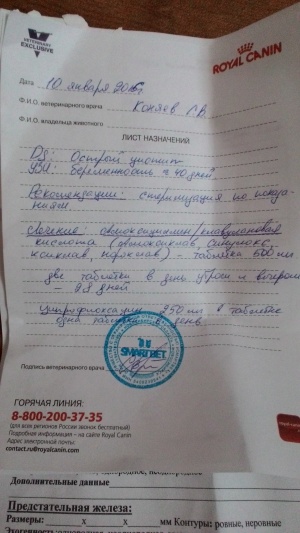 VETERINARY
EXCLUSIVE
ROYAL CANIN
Дата 10 января 20
Ф.И.О. ветеринарного врача Коняев
Ф.И.О. владельца животного
ЛИСТ НАЗНАЧЕНИЙ
DS: Острый цистит
УЗИ: беременность ≈ 40 дней.
Рекомендации: стерилизация по показа-
ниям
Лечение: амоксициллин/клавулоновая
кислота (амоксиклав, синулокс,
ксиклав, ) - таблетка 600 мг
две таблетки в день утром и вечером
- дней
250 мг в таблетке
одна таблетка в день
SMARTVET
Подпись ветеринарного врача
ГОРЯЧАЯ ЛИНИЯ:
8-800-200-37-35
(для всех регионов России звонок бесплатный)
Подробная информация – на сайте Royal Canin
Адрес электронной почты:
contact.ru@royalcanin.com
неоднородное
Дополнительные данные
Предстательная железа:
Размеры: х х мм Контуры: ровные, неровные